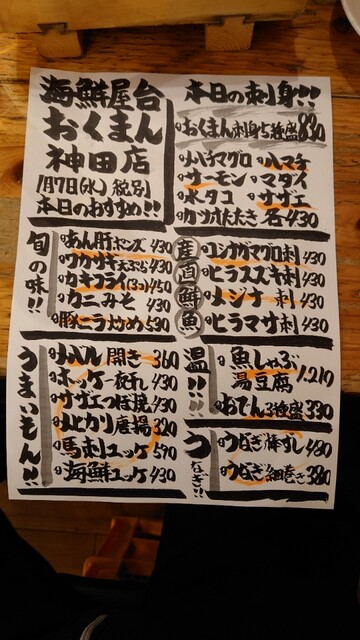 海鮮屋台
おくまん
神田店
1月7日(水) 税別
本日のおすすめ!!
本日の刺身!!
おくまん刺身5種盛 830
ハマチ
サーモン
マダイ
水タコ
サザエ
カツオたたき 各430
旬の味!!
あん肝ポンズ 430
ワカサギ天ぷら 430
カキフライ(3コ) 450
カニみそ 430
豚ニラ炒め 530
産直鮮魚
コシナガマグロ刺 430
ヒラスズキ刺 430
メジナ刺 430
ヒラマサ刺 430
うまいもん!!
開き 360
ホッケ一夜干し 430
サザエつぼ焼 430
メヒカリ唐揚 320
馬刺ユッケ 590
海鮮ユッケ 430
温!!
魚しゃぶ
湯豆腐 1.210
おでん3種盛 330
うなぎ!!
うなぎ棒すし 480
うなぎ細巻き 380